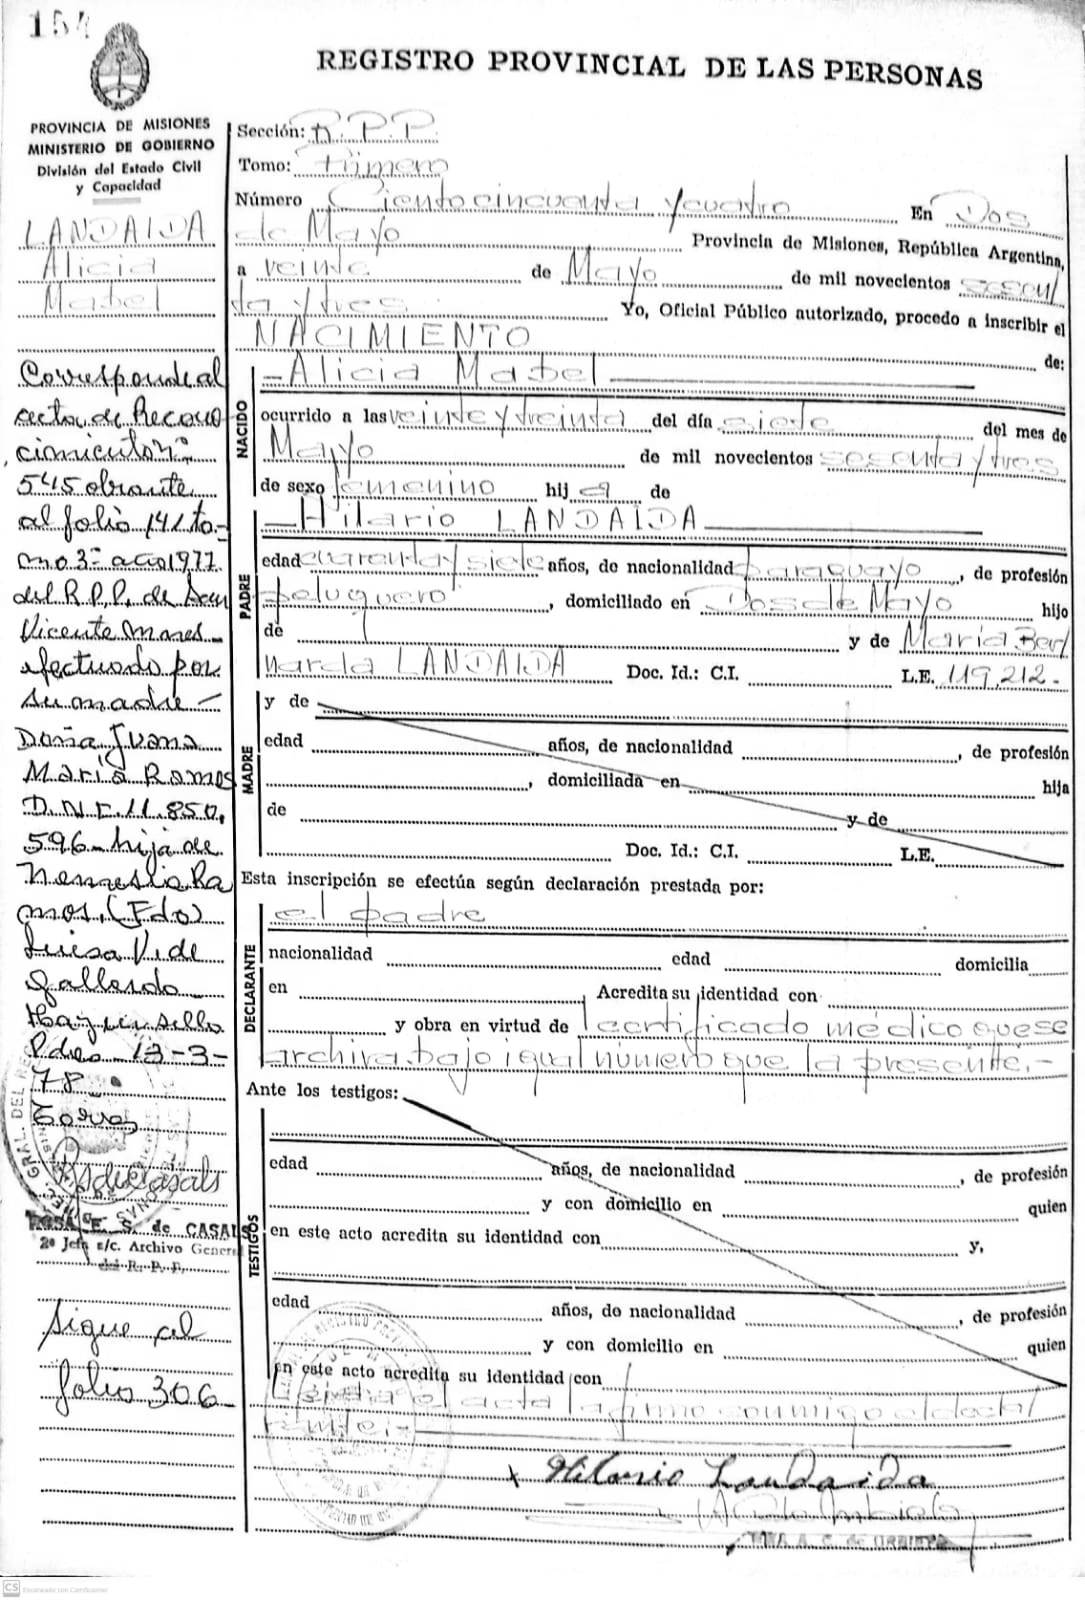 154
REGISTRO PROVINCIAL DE LAS PERSONAS
PROVINCIA DE MISIONES
MINISTERIO DE GOBIERNO
División del Estado Civil
y Capacidad
LANDAIDA
Alicia
Mabel
Corresponde al
acta de Recono
cimiento nº
545 obrante
al folio 141 to-
mo 3º año 1977
del R.P.P. de San
Vicente Mnes.
efectuado por
su madre -
Doña Juana
María Ramos
D.N.I. 11.850,
596 - hija de
Nemeslo Ra
mos, (Fdo)
Luisa V. de
Gallardo
Hay un sello
Pdas 13-3-
78 -
Torres
ROSA E. S. de CASALS
2º Jefa s/c. Archivo General
del R. P. P.
Sigue al
folio 306
Sección: R.P.P.
Tomo: Primero
Número Ciento cincuenta y cuatro En Dos
de Mayo Provincia de Misiones, República Argentina,
a veinte de Mayo de mil novecientos sesen/
ta y tres. Yo, Oficial Público autorizado, procedo a inscribir el
NACIMIENTO de:
NACIDO
- Alicia Mabel
ocurrido a las veinte y treinta del día siete del mes de
Mayo de mil novecientos sesenta y tres
de sexo femenino hij a de
PADRE
- Hilario LANDAIDA
edad cuarenta y siete años, de nacionalidad paraguayo, de profesión
peluquero, domiciliado en Dos de Mayo hijo
de y de María Ber/
narda LANDAIDA Doc. Id.: C.I. L.E. 119,212.-
MADRE
y de
edad años, de nacionalidad, de profesión
, domiciliada en hija
de y de
Doc. Id.: C.I. L.E.
Esta inscripción se efectúa según declaración prestada por:
DECLARANTE
el padre
nacionalidad edad domicilia
en Acredita su identidad con
y obra en virtud de certificado médico que se
archiva bajo igual número que la presente.-
Ante los testigos:
TESTIGOS
edad años, de nacionalidad, de profesión
y con domicilio en quien
en este acto acredita su identidad con y,
edad años, de nacionalidad, de profesión
y con domicilio en quien
en este acto acredita su identidad con
Leída el acta la firma conmigo el decla/
rante.-
Hilario Landaida
CS Escaneado con CamScanner